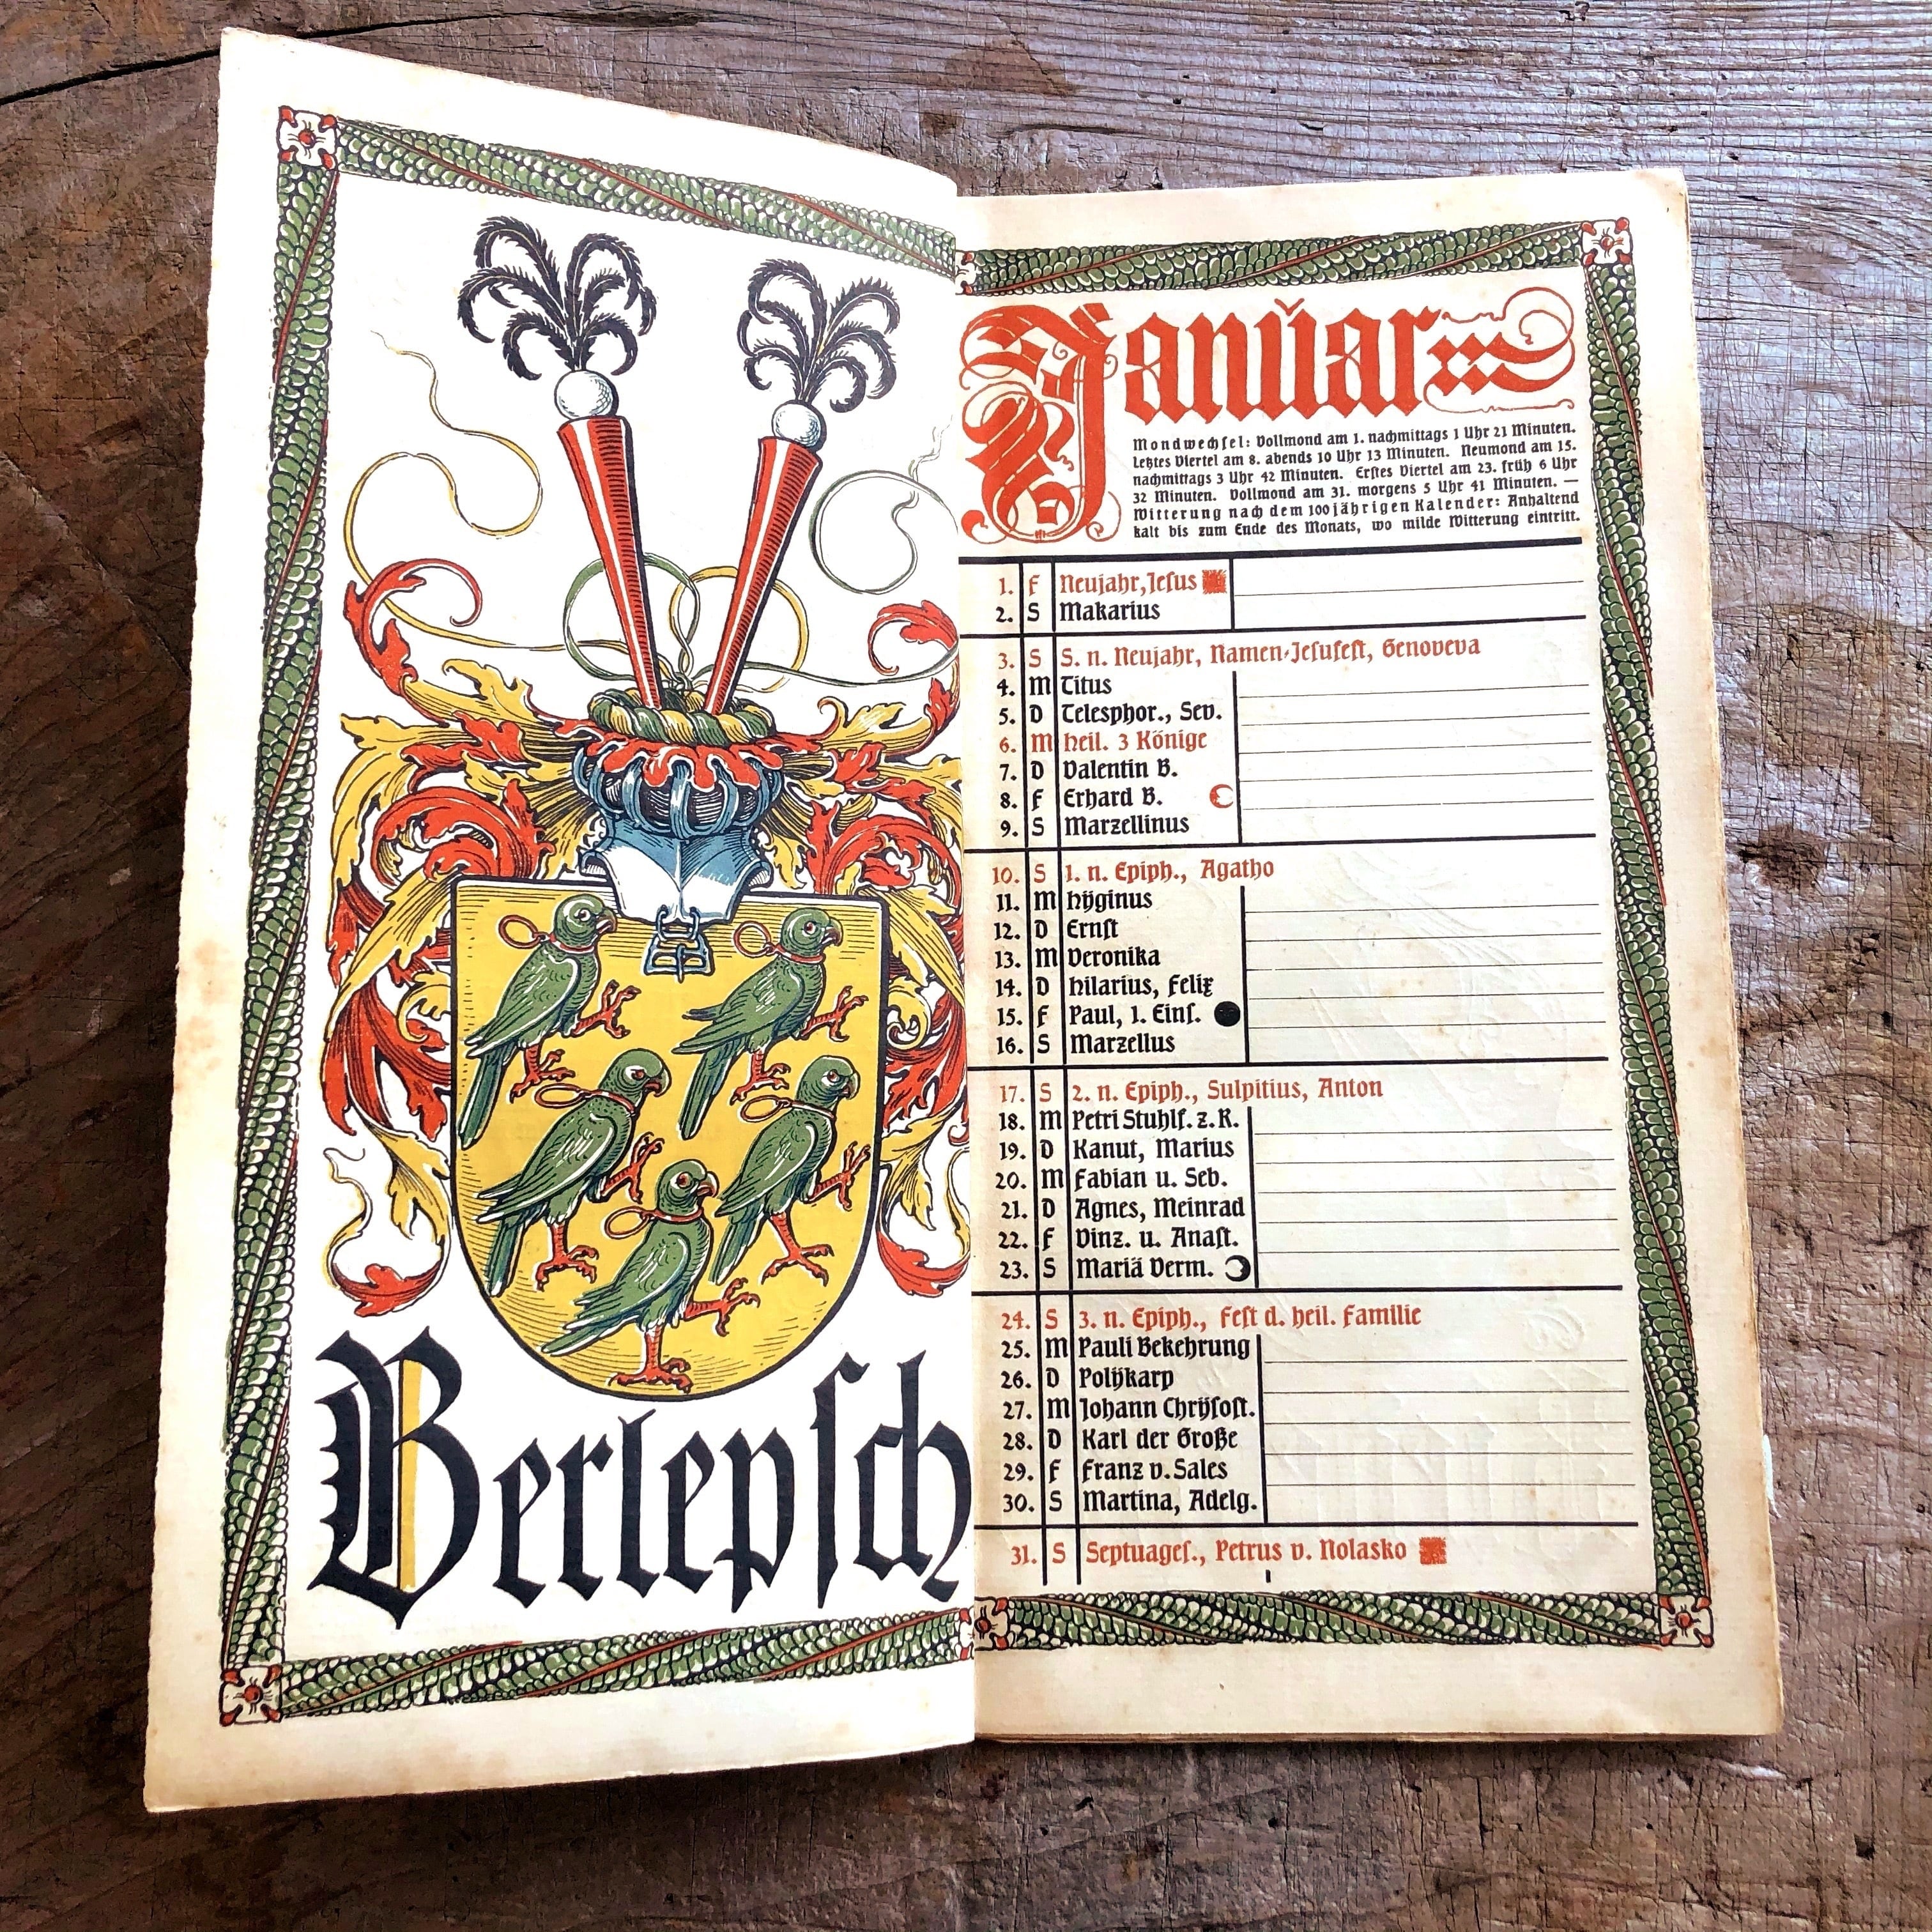 Berlepsch
Januar
Mondwechsel: Vollmond am 1. nachmittags 1 Uhr 21 Minuten.
Letztes Viertel am 8. abends 10 Uhr 13 Minuten. Neumond am 15.
nachmittags 3 Uhr 42 Minuten. Erstes Viertel am 23. früh 6 Uhr
32 Minuten. Vollmond am 31. morgens 5 Uhr 41 Minuten. —
Witterung nach dem 100jährigen Kalender: Anhaltend
kalt bis zum Ende des Monats, wo milde Witterung eintritt.
1. F Neujahr, Jesus
2. S Makarius
3. S S. n. Neujahr, Namen-Jesufest, Genoveva
4. M Titus
5. D Telesphor., Sev.
6. M heil. 3 Könige
7. D Valentin B.
8. F Erhard B.
9. S Marzellinus
10. S 1. n. Epiph., Agatho
11. M Hÿginus
12. D Ernst
13. M Veronika
14. D Hilarius, Felix
15. F Paul, 1. Eins.
16. S Marzellus
17. S 2. n. Epiph., Sulpitius, Anton
18. M Petri Stuhlf. z. R.
19. D Kanut, Marius
20. M Fabian u. Seb.
21. D Agnes, Meinrad
22. F Vinz. u. Anast.
23. S Mariä Verm.
24. S 3. n. Epiph., Fest d. heil. Familie
25. M Pauli Bekehrung
26. D Polÿkarp
27. M Johann Chrÿsost.
28. D Karl der Große
29. F Franz v. Sales
30. S Martina, Adelg.
31. S Septuages., Petrus v. Nolasko